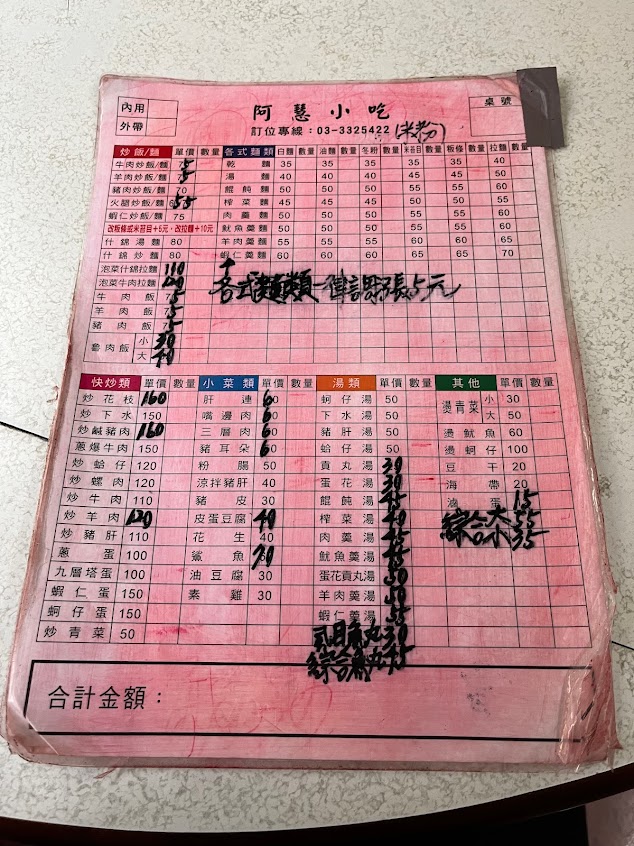 內用
外帶
阿慧小吃
訂位專線：03-3325422
(米粉)
桌號
炒飯/麵 單價 數量
牛肉炒飯/麵 75
羊肉炒飯/麵 75
豬肉炒飯/麵 70
火腿炒飯/麵 55
蝦仁炒飯/麵 75
改粄條或米苔目+5元，改拉麵+10元
什錦湯麵 80
什錦炒麵 80
泡菜什錦拉麵 110
泡菜牛肉拉麵
牛肉飯 75
羊肉飯 75
豬肉飯 75
魯肉飯 小 30
大 40
各式麵類 白麵 數量 油麵 數量 冬粉 數量 米苔目 數量 粄條 數量 拉麵 數量
乾麵 35 35 35 35 35 40
湯麵 40 40 40 40 40 50
餛飩麵 50 50 50 55 55 60
榨菜麵 45 45 45 50 50 55
肉羹麵 50 50 50 55 55 60
魷魚羹麵 50 50 50 55 55 60
羊肉羹麵 55 55 55 60 60 65
蝦仁羹麵 60 60 60 65 65 70
各式麵類一律調漲5元
快炒類 單價 數量
炒花枝 160
炒下水 150
炒鹹豬肉 160
蔥爆牛肉 150
炒蛤仔 120
炒螺肉 120
炒牛肉 110
炒羊肉 120
炒豬肝 110
蔥蛋 100
九層塔蛋 100
蝦仁蛋 150
蚵仔蛋 150
炒青菜 50
小菜類 單價 數量
肝連 60
嘴邊肉 60
三層肉 60
豬耳朵 60
粉腸 50
涼拌豬肝 40
豬皮 30
皮蛋豆腐 40
花生 40
鯊魚 70
油豆腐 30
素雞 30
湯類 單價 數量
蚵仔湯 50
下水湯 50
豬肝湯 50
蛤仔湯 50
貢丸湯 30
蛋花湯 30
餛飩湯 45
榨菜湯 40
肉羹湯 45
魷魚羹湯 45
蛋花貢丸湯 50
羊肉羹湯 50
蝦仁羹湯 55
丸 30
綜合 丸 45
其他 單價 數量
燙青菜 小 30
大 50
燙魷魚 60
燙蚵仔 100
豆干 20
海帶 20
滷蛋 15
綜合大 55
小 35
合計金額：